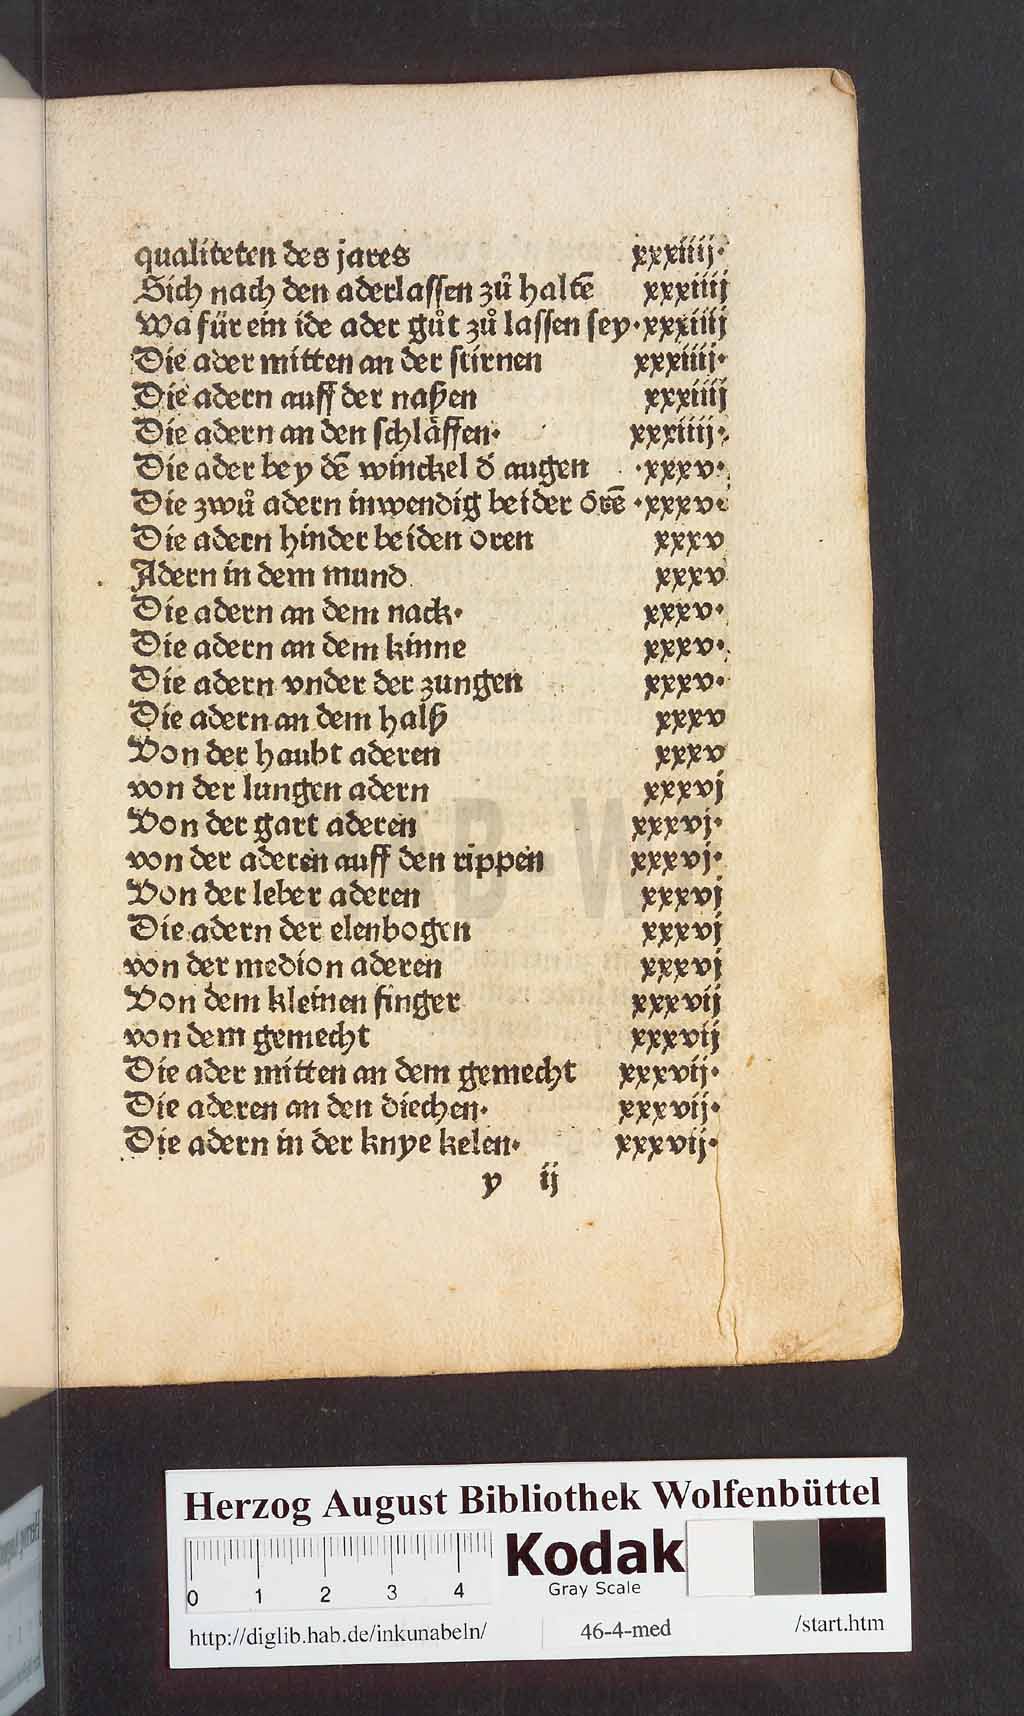 qualiteten des jares xxxiiij·
Sich nach den aderlassen zů haltē xxxiiij
Wa für ein ide ader gůt zů lassen sey· xxxiiij
Die ader mitten an der stirnen xxxiiij·
Die adern auff der naßen xxxiiij
Die adern an den schläffen· xxxiiij·
Die ader bey dē winckel d' augen ·xxxv·
Die zwů adern inwendig beider orē ·xxxv·
Die adern hinder beiden oren xxxv
Adern in dem mund xxxv
Die adern an dem nack· xxxv·
Die adern an dem kinne xxxv·
Die adern vnder der zungen xxxv·
Die adern an dem halß xxxv
Von der haubt aderen xxxv
von der lungen adern xxxvj
Von der gart aderen xxxvj·
von der aderen auff den rippen xxxvj·
Von der leber aderen xxxvj
Die adern der elenbogen xxxvj
von der medion aderen xxxvj
Von dem kleinen finger xxxvij
von dem gemecht xxxvij
Die ader mitten an dem gemecht xxxvij·
Die aderen an den diechen· xxxvij·
Die adern in der knye kelen· xxxvij·
y ij
HAB-W
Herzog August Bibliothek Wolfenbüttel
0 1 2 3 4
Kodak
Gray Scale
http://diglib.hab.de/inkunabeln/ 46-4-med /start.htm